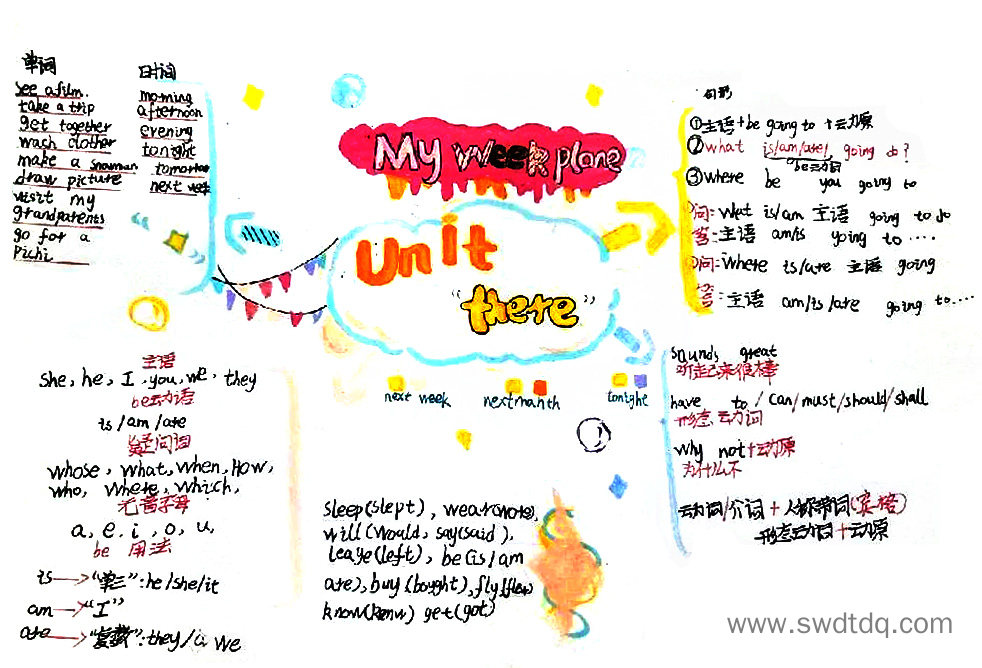 单词
see a film.
take a trip
get together
wach clother
make a snowman
draw picture
visit my
grandparents
go for a
Pichi
时间
morning
afternoon
evening
tonight
tomorrow
next week
My week plane
Unit
"there"
next week
next manth
tonighe
句形
①主语+be going to +动原
②what is/am/are/ going do?
be动词
③where be you going to
问: wet is/am 主语 going to do
答: 主语 am/is yoing to ····
问: Where is/are 主语 going
答: 主语 am/is/are going to····
主语
She, he, I, you, we, they
be动语
is/am/are
疑问词
whose, what, when, How,
who, where, which,
元音字母
a, e, i, o, u,
be 用法
is→"单三":he/she/it
am→"I"
are→"复数":they/a we
sleep(slept), wear(wore),
will(would, say(said),
leaye(left), be(is/am
are), buy(bought), fly(flew)
know(knew) get(got)
sounds great
听起来很棒
have to/can/must/should/shall
形态动词
why not+动原
为什么不
动词/介词+人称带词(宾格)
形态动词+动原
www.swdtdq.com